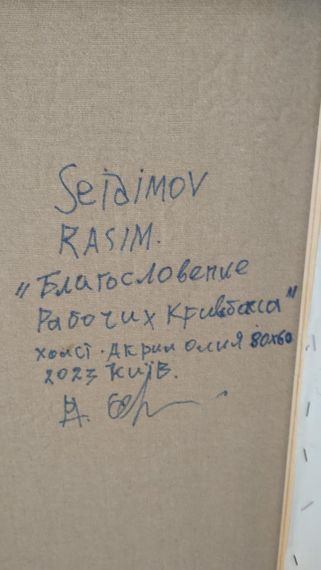 Seidimov
RASIM.
"Благословение
Рабочих Кривбаса"
холст. Акрил олия 80х60
2023 Київ.